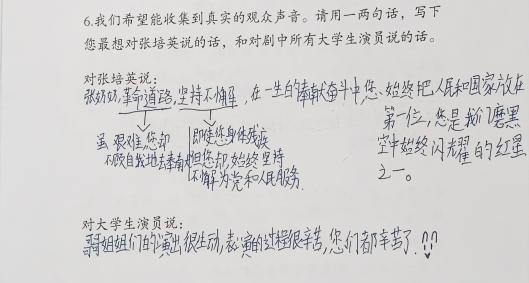 6.我们希望能收集到真实的观众声音。请用一两句话，写下
您最想对张培英说的话，和对剧中所有大学生演员说的话。
对张培英说：
张奶奶，革命道路，坚持不懈，在一生的奉献奋斗中，您始终把人民和国家放在
第一位，您是我们黑
空中始终闪耀的红星
之一。
虽艰难，您却
不顾自我地去奉献
即使您身体残疾
但您却始终坚持
不懈为党和人民服务.
对大学生演员说：
哥姐姐们的演出很生动，表演的过程很辛苦，您们都辛苦了.